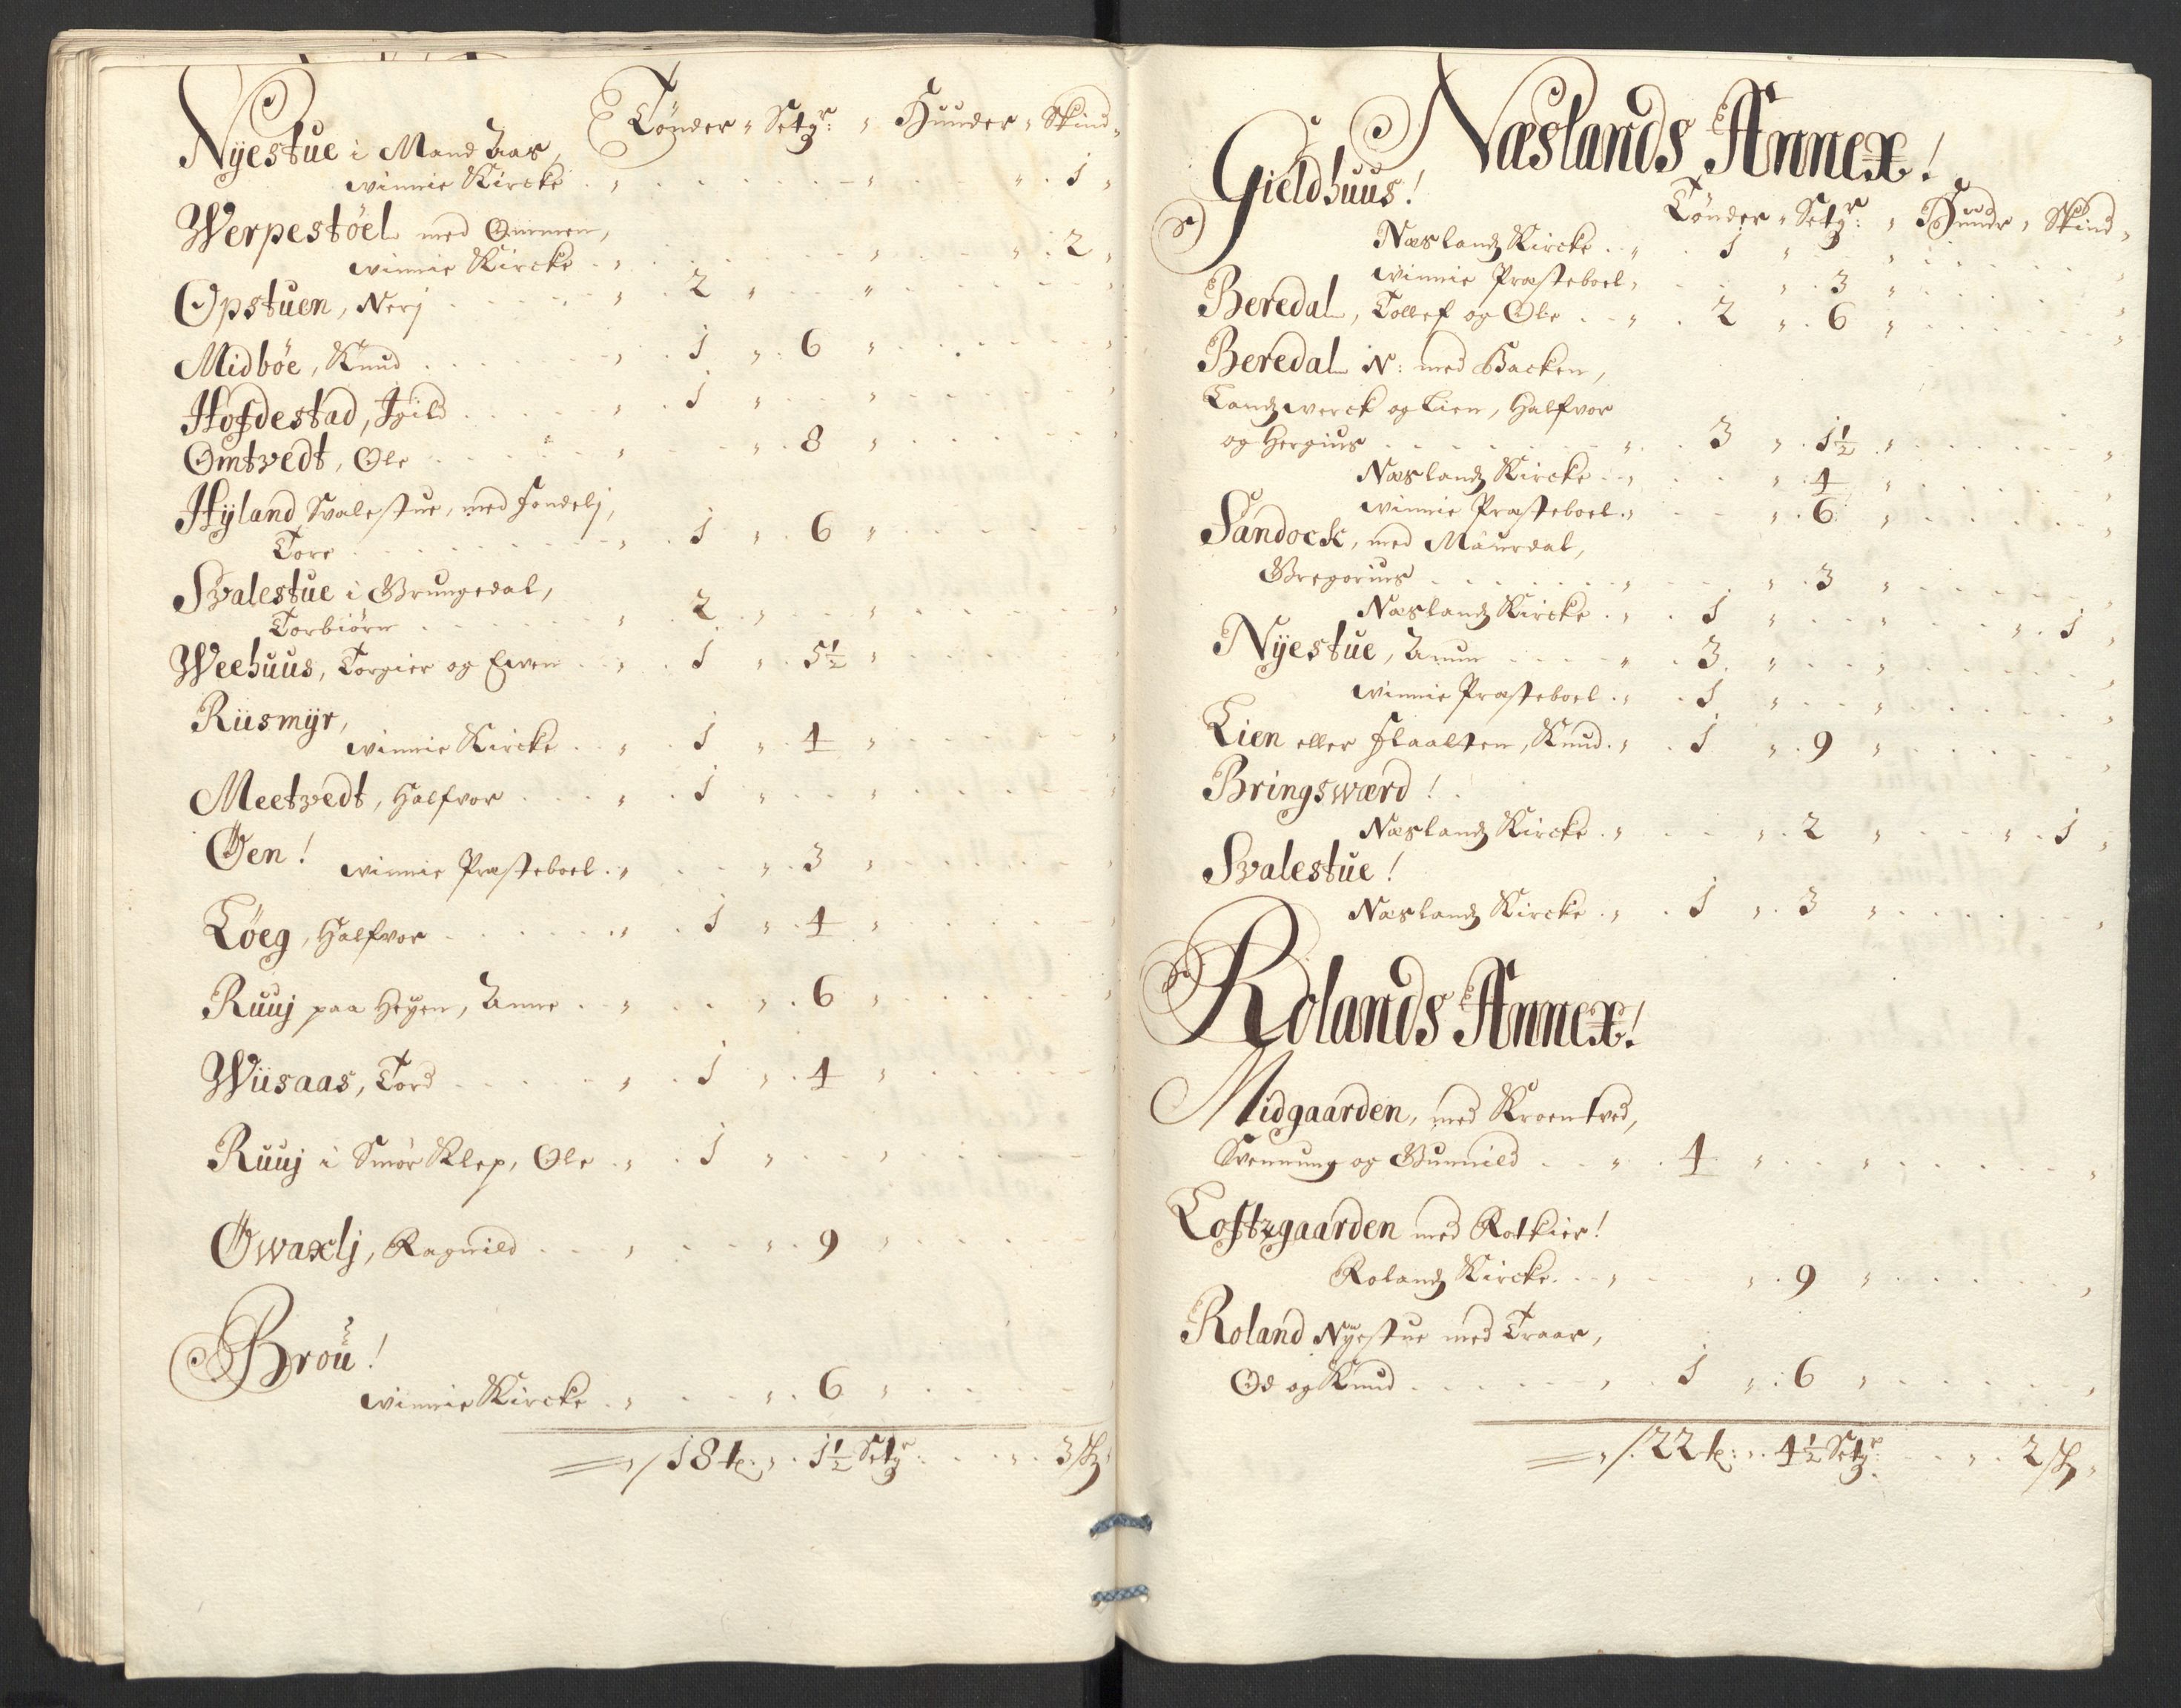 Tönder " Setgr: " Huuder " Skind "
Nÿestue i Mand Aas,
winnie Kircke . " . . . . . . " . . . . " . 1 "
Werpestöel med Ommen,
winnie Kircke . " . . . . . . " . . . . " . 2 "
Opstuen, Nerj . . . . " . 2 " . . . "
Midböe, Knud . . . . " . 1 " . 6 "
Hofdestad, Igild . . . . " . 1 " . . . "
Omtvedt, Ole . . . . " . . . " . 8 "
Hÿland Svalestue, med Fondelj,
Tore . . . . " . 1 " . 6 "
Svalestue i Grungedal,
Torbiörn . . . . " . 2 " . . . "
Weehuus, Torgier og Ewen . . " . 1 " . 5½ "
Riismÿr,
winnie Kircke . . " . 1 " . 4 "
Meetvedt, Halfvor . . . . " . 1 " . . . "
Öen !
winnie Præsteboel . " . . . " . 3 "
Löeg, Halfvor . . . . " . 1 " . 4 "
Ruuj paa Heÿen, Anne . . " . . . " . 6 "
Wiisaas, Tord . . . . " . 1 " . 4 "
Ruuj i Smör Klep, Ole . " . 1 " . . . "
Öwaxlj, Ragnild . . . " . . . " . 9 "
Brou !
winnie Kircke . " . . . " . 6 "
" / 18 t: " . 1½ Setgr . . " . 3 sk "
Næslands Annex !
Gieldhuus !
Tönder " Setgr: " Huudr " Skind "
Næslandz Kircke . . " . 1 " . . . "
winnie Præsteboel " . . . " . 3 "
Beredal, Tollef og Ole . . " . 2 " . 6 "
Beredal N: med Backen,
Landzwerck og Lien, Halfvor
og Hergius . . . . " . 3 " . 1½ "
Næslandz Kircke . . " . . . " . 4 "
winnie Præsteboel . " . . . " . 6 "
Sandock, med Maurdal,
Gregorius . . . . " . . . " . 3 "
Næslandz Kircke . " . 1 " . . . " . . . " . 1 "
Nÿestue, Anun . . . . " . 3 " . . . "
winnie Præsteboel . " . 1 " . . . "
Lien eller Flaalten, Knud . " . 1 " . 9 "
Bringswærd !
Næslandz Kircke . " . . . " . 2 " . . . " . 1 "
Svalestue !
Næslandz Kircke . " . 1 " . 3 "
Rolands Annex !
Midgaarden, med Kroentved,
Svennung og Gunnild . . " . 4 " . . . "
Loftzgaarden med Rotkier !
Rolandz Kircke . . " . . . " . 9 "
Roland Nÿestue med Traar,
Od og Knud . . . . " . 1 " . 6 "
" / . 22 t: " . 4½ Setgr: . . " . 2 sk "